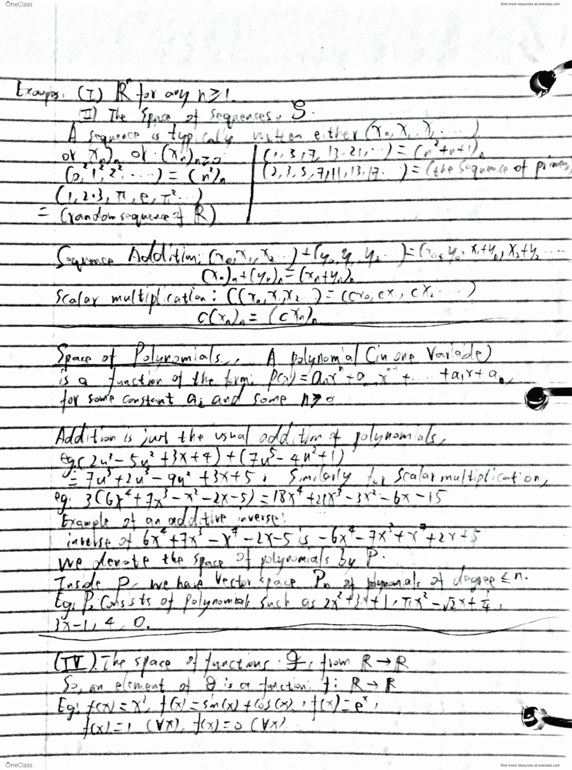 OneClass
find more resources at oneclass.com
Examples: (I) ℝⁿ for any n≥1.
(II) The Space of sequences. S.
A sequence is typically written either (x₀, x₁, ...)
or xₙ)ₙ or (xₙ)ₙ≥₀ | (1,3,7, 13, 21, ...) = (n²+n+1)ₙ
(0, 1², 2², ...) = (n²)ₙ | (2,3,5,7,11,13,17 ...) = (the sequence of primes)
(1, 2.3, π, e, π² ...)
= (random sequence of ℝ)
Sequence Addition: (x₀, x₁, x₂ ...) + (y₀, y₁, y₂ ...) = (x₀+y₀, x₁+y₁, x₂+y₂ ...
(xₙ)ₙ + (yₙ)ₙ = (xₙ+yₙ)ₙ
Scalar multiplication: C(x₀, x₁, x₂ ...) = (cx₀, cx₁, cx₂ ...)
c(xₙ)ₙ = (cxₙ)ₙ
Space of Polynomials. A polynomial (in one variable)
is a function of the form: P(x) = aₙxⁿ + aₙ₋₁xⁿ⁻¹ + ... + a₁x + a₀,
for some constant aᵢ and some n≥0
Addition is just the usual addition of polynomials,
= 7u⁵ + 2u³ - 9u² + 3x + 5. Similarly for scalar multiplication,
eg. 3(6x⁴ + 7x³ - x² - 2x - 5) = 18x⁴ + 21x³ - 3x² - 6x - 15
Example of an additive inverse:
inverse of 6x⁴ + 7x³ - x² - 2x - 5 is -6x⁴ - 7x³ + x² + 2x + 5
we denote the space of polynomials by P.
Inside P, we have vector space Pₙ of polynomials of degree ≤ n.
Eg: P₂ consists of polynomials such as 2x² + 3x + 1, πx² - √2x + ¼,
3x - 1, 4, 0.
(IV) The space of functions F, from ℝ → ℝ
So, an element of F is a function f: ℝ → ℝ
Eg: f(x) = x², f(x) = sin(x) + cos(x), f(x) = eˣ,
f(x) = 1 (∀x), f(x) = 0 (∀x)
OneClass
find more resources at oneclass.com